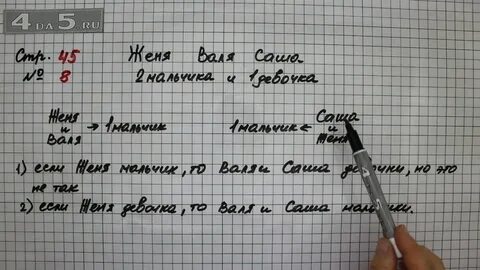 4DA5.RU
Стр. 45 Женя Валя Саша
№ 8 2 мальчика и 1 девочка
Женя Саша
и → 1 мальчик 1 мальчик ← и
Валя Женя
1) если Женя мальчик, то Валя и Саша девочки, но это
не так
2) если Женя девочка, то Валя и Саша мальчики.